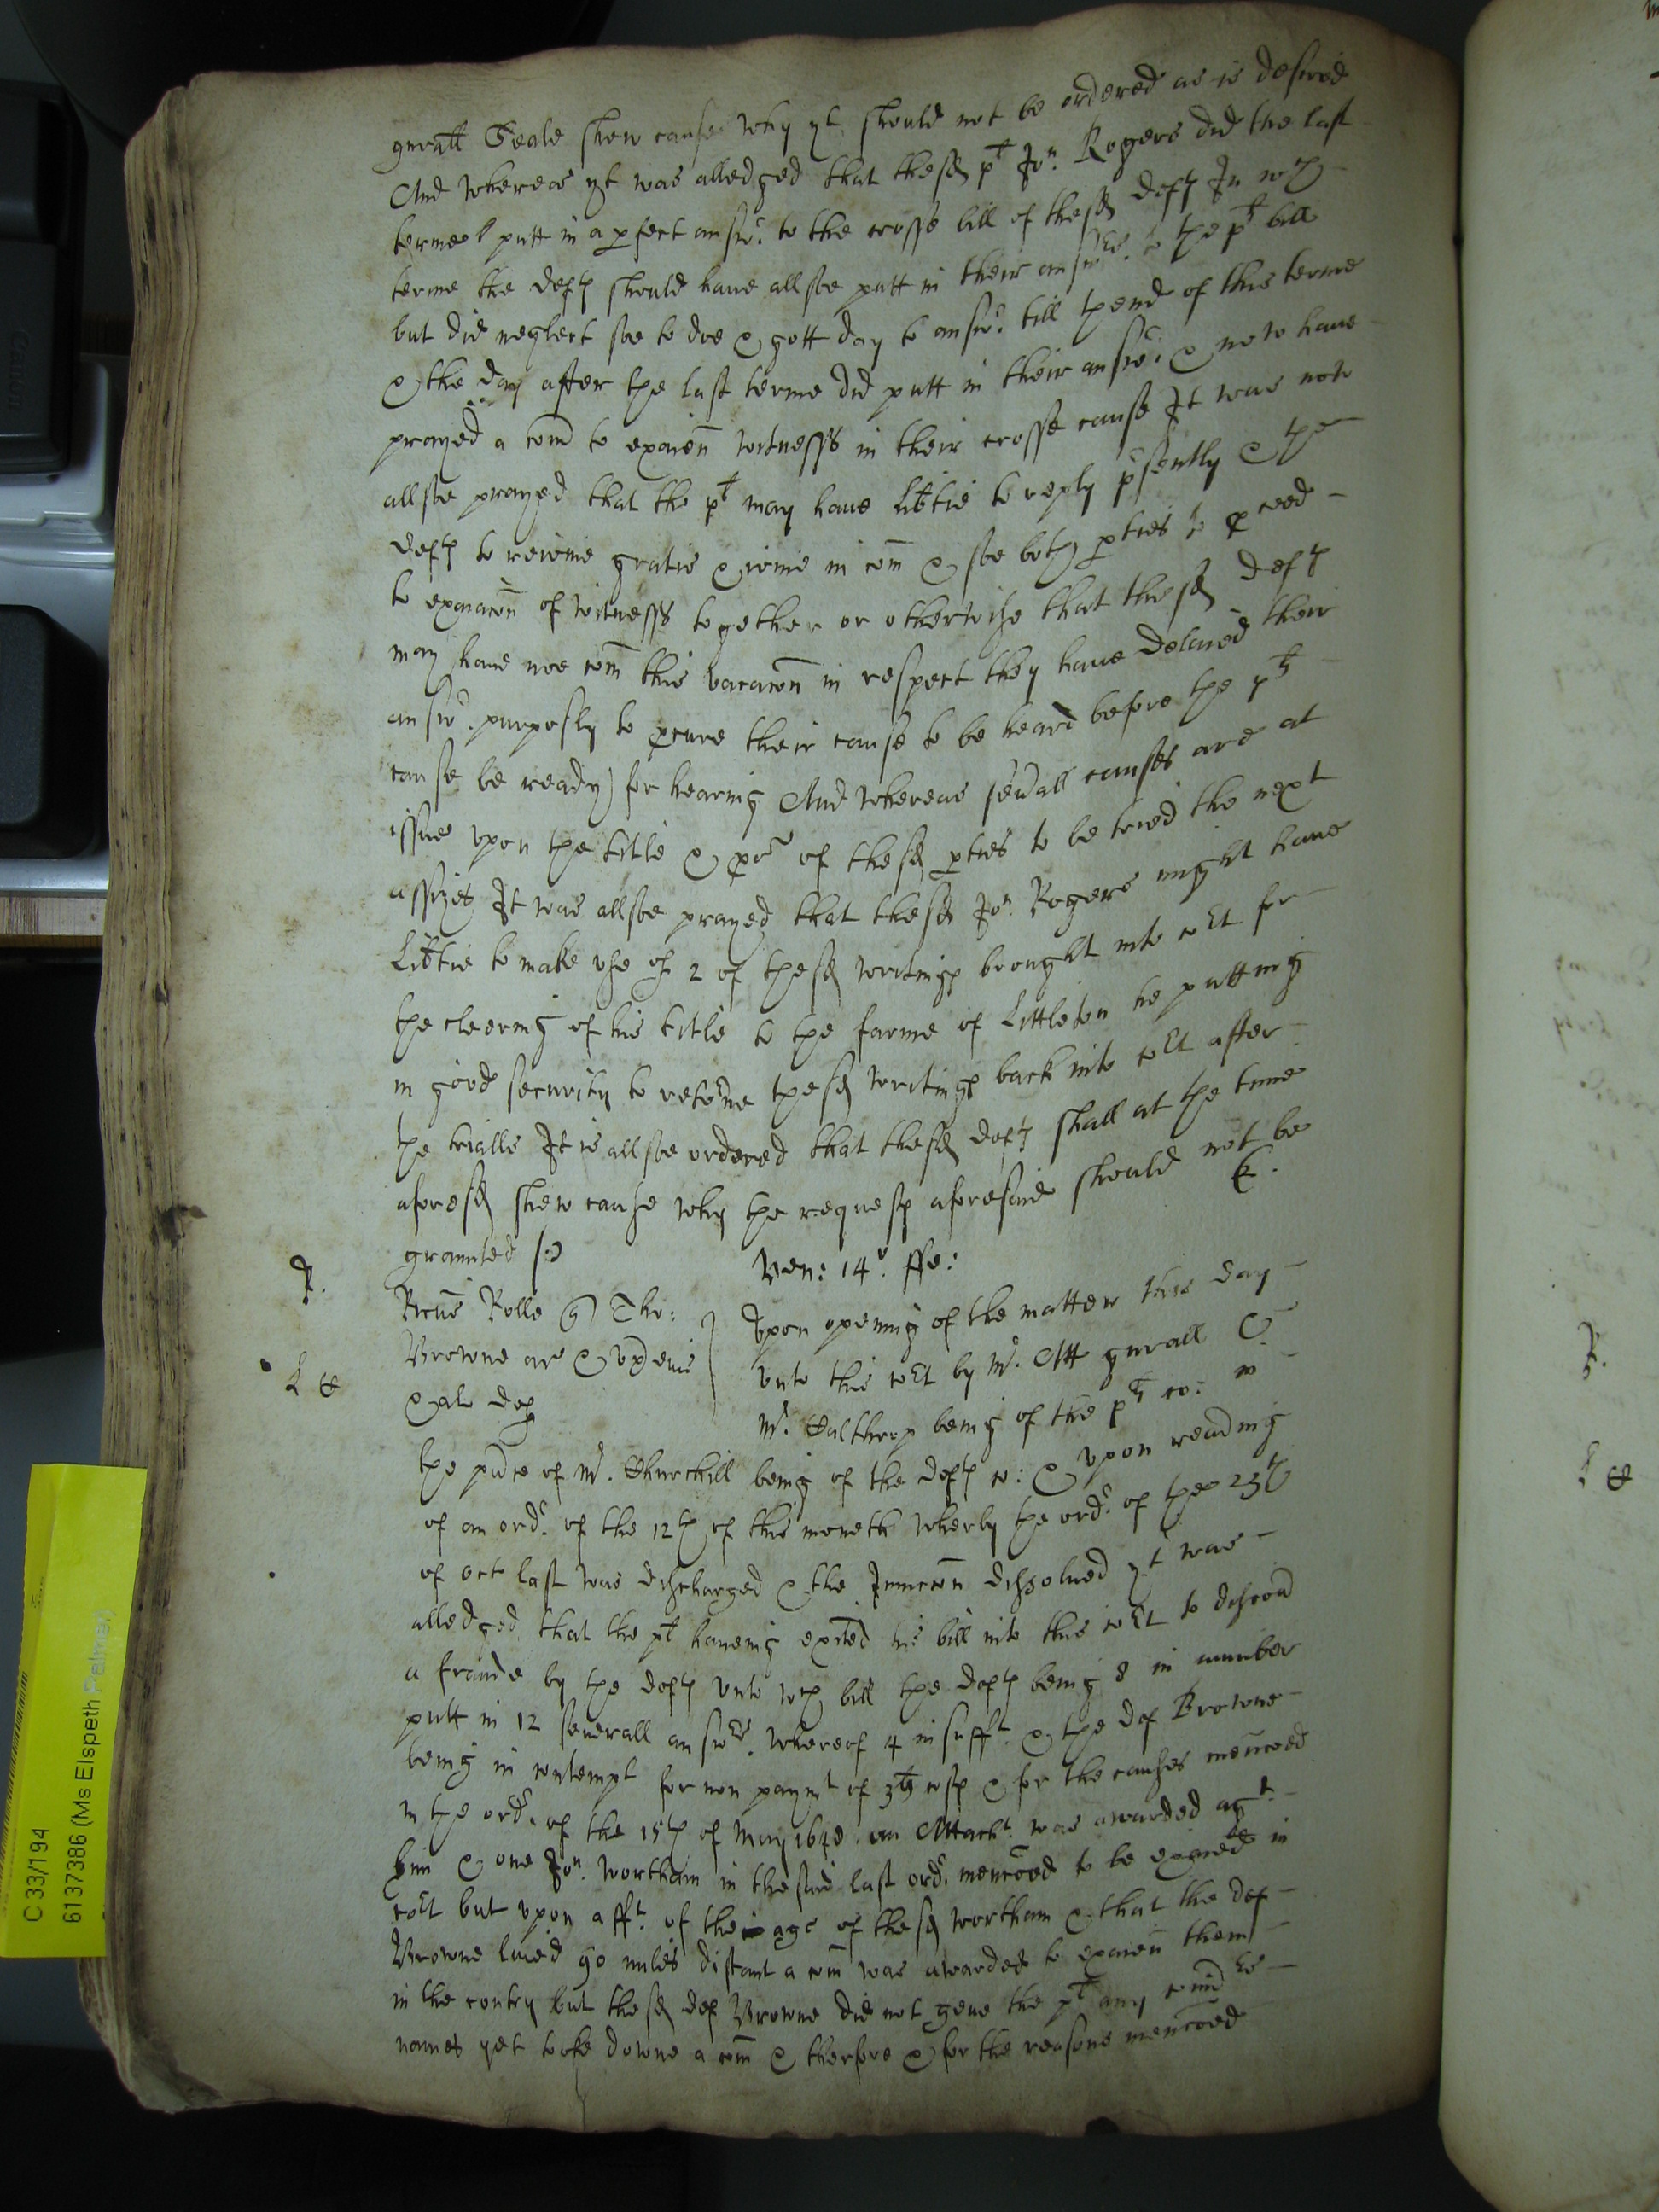 gnrall Seale shew cause why yt should not be ordered as is desired
And whereas yt was alledged that the sd plt Jon. Rogers did the last
terme putt in a pfect answr. to the crosse bill of the sd defts In wch
terme the defts should have allsoe putt in their answrs. to the plts bill
but did neglect soe to doe & gott day to answr. till thend of this terme
& the day after the last terme did putt in their answr. & now have
prayed a com to exaien witnesss in their crosse cause It was now
allsoe prayed that the plt may have Libtie to reply psently & the
defts to reioine gratis & ioine in com & soe both pties to pceed
to exaiacon of witnesss together or otherwise that the sd defts
may have noe com this vacacon in respect they have delaied their
answr. purposly to pcure their cause to be heard before the plts
cause be ready for hearing And whereas seuall causes are at
issue vpon the title & of the sd pties to be tried the next
assizes It was allsoe prayed that the sd Jon. Rogers might have
Libtie to make use of 2 of the sd writings brought into cot for
the cleering of his title to the farme of Littleton he putting
in good security to retorne the sd writings back into cot after
the trialls It is allsoe ordered that the sd defts shall at the time
aforesd shew cause why the requests aforesaid should not be
graunted
Ven: 14o. ffe:
R.
Rolle Tho:
Browne ar & ux eius
& al defts
Vpon opening of the matter this day
vnto this cot by Mr. Att gnrall &
Mr. Halthrop being of the plts co: in
the pnce of Mr. Churchill being of the defts co: & vpon reading
of an ordr. of the 12th of this moneth wherby the ordr. of the 25th
of Oct last was discharged & the Iniuccon dissolued yt was
alledged that the plt haueing exhted his bill into this cot to discou
a fraude by the defts vnto wch bill the defts being 8 in number
putt in 12 seuerall answrs. whereof 4 insufft. & the def Browne
being in contempt for non paymt of costs & for the causes mencoed
in the ordr. of the 15th of May 1648 an Attacht. was awarded agt.
him & one Jon. Wortham in the said last ordr. mencoed to be exaied in
cot but vpon afft. of the age of the sd Wortham & that the def
Browne lived 90 miles distant a com was awarded to exaien them
in the contry but the sd def Browne did not geue the plt any comrs
names yet tooke downe a com & therfore & for the reasons mencoed
C 33/194
6137386 (Ms Elspeth Palmer)